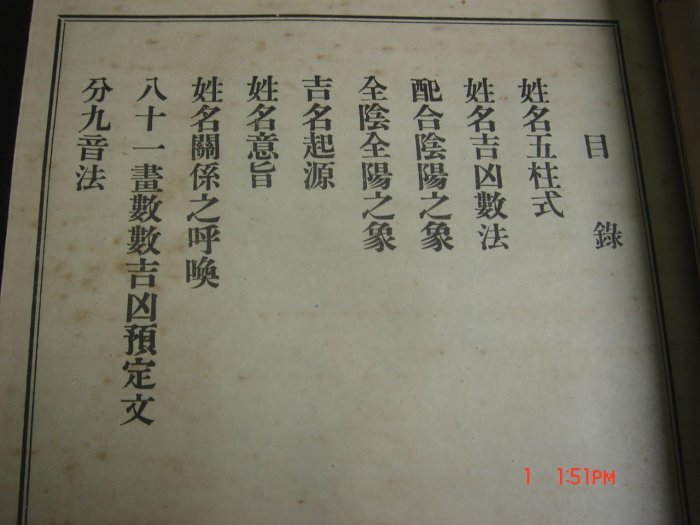 目錄
姓名五柱式
姓名吉凶數法
配合陰陽之象
全陰全陽之象
吉名起源
姓名意旨
姓名關係之呼喚
八十一畫數數吉凶預定文
分九音法
1 1:51PM